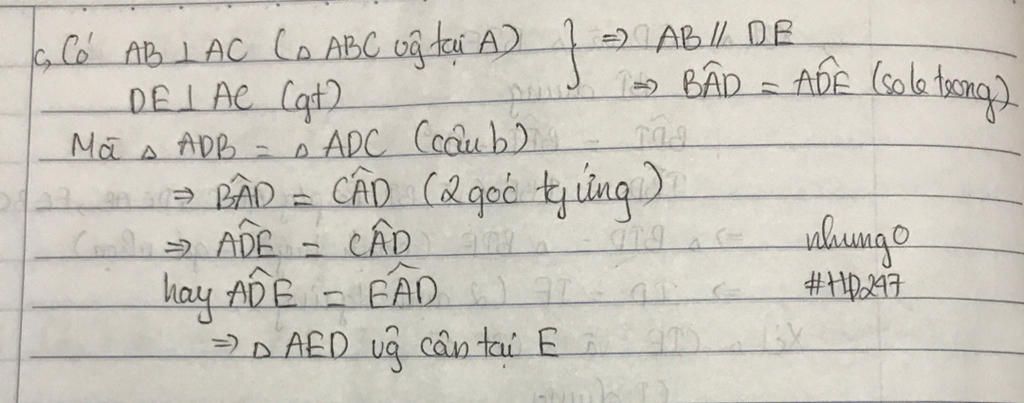 c, Có AB ⊥ AC (△ ABC vg tại A) } ⇒ AB // DE
DE ⊥ AC (gt) ⇒ BÂD = AD̂E (so le trong)
Mà △ ADB = △ ADC (câu b)
⇒ BÂD = CÂD (2 góc tg ứng)
⇒ AD̂E = CÂD
hay AD̂E = EÂD
⇒ △ AED vg cân tại E
nhungO
#HD247